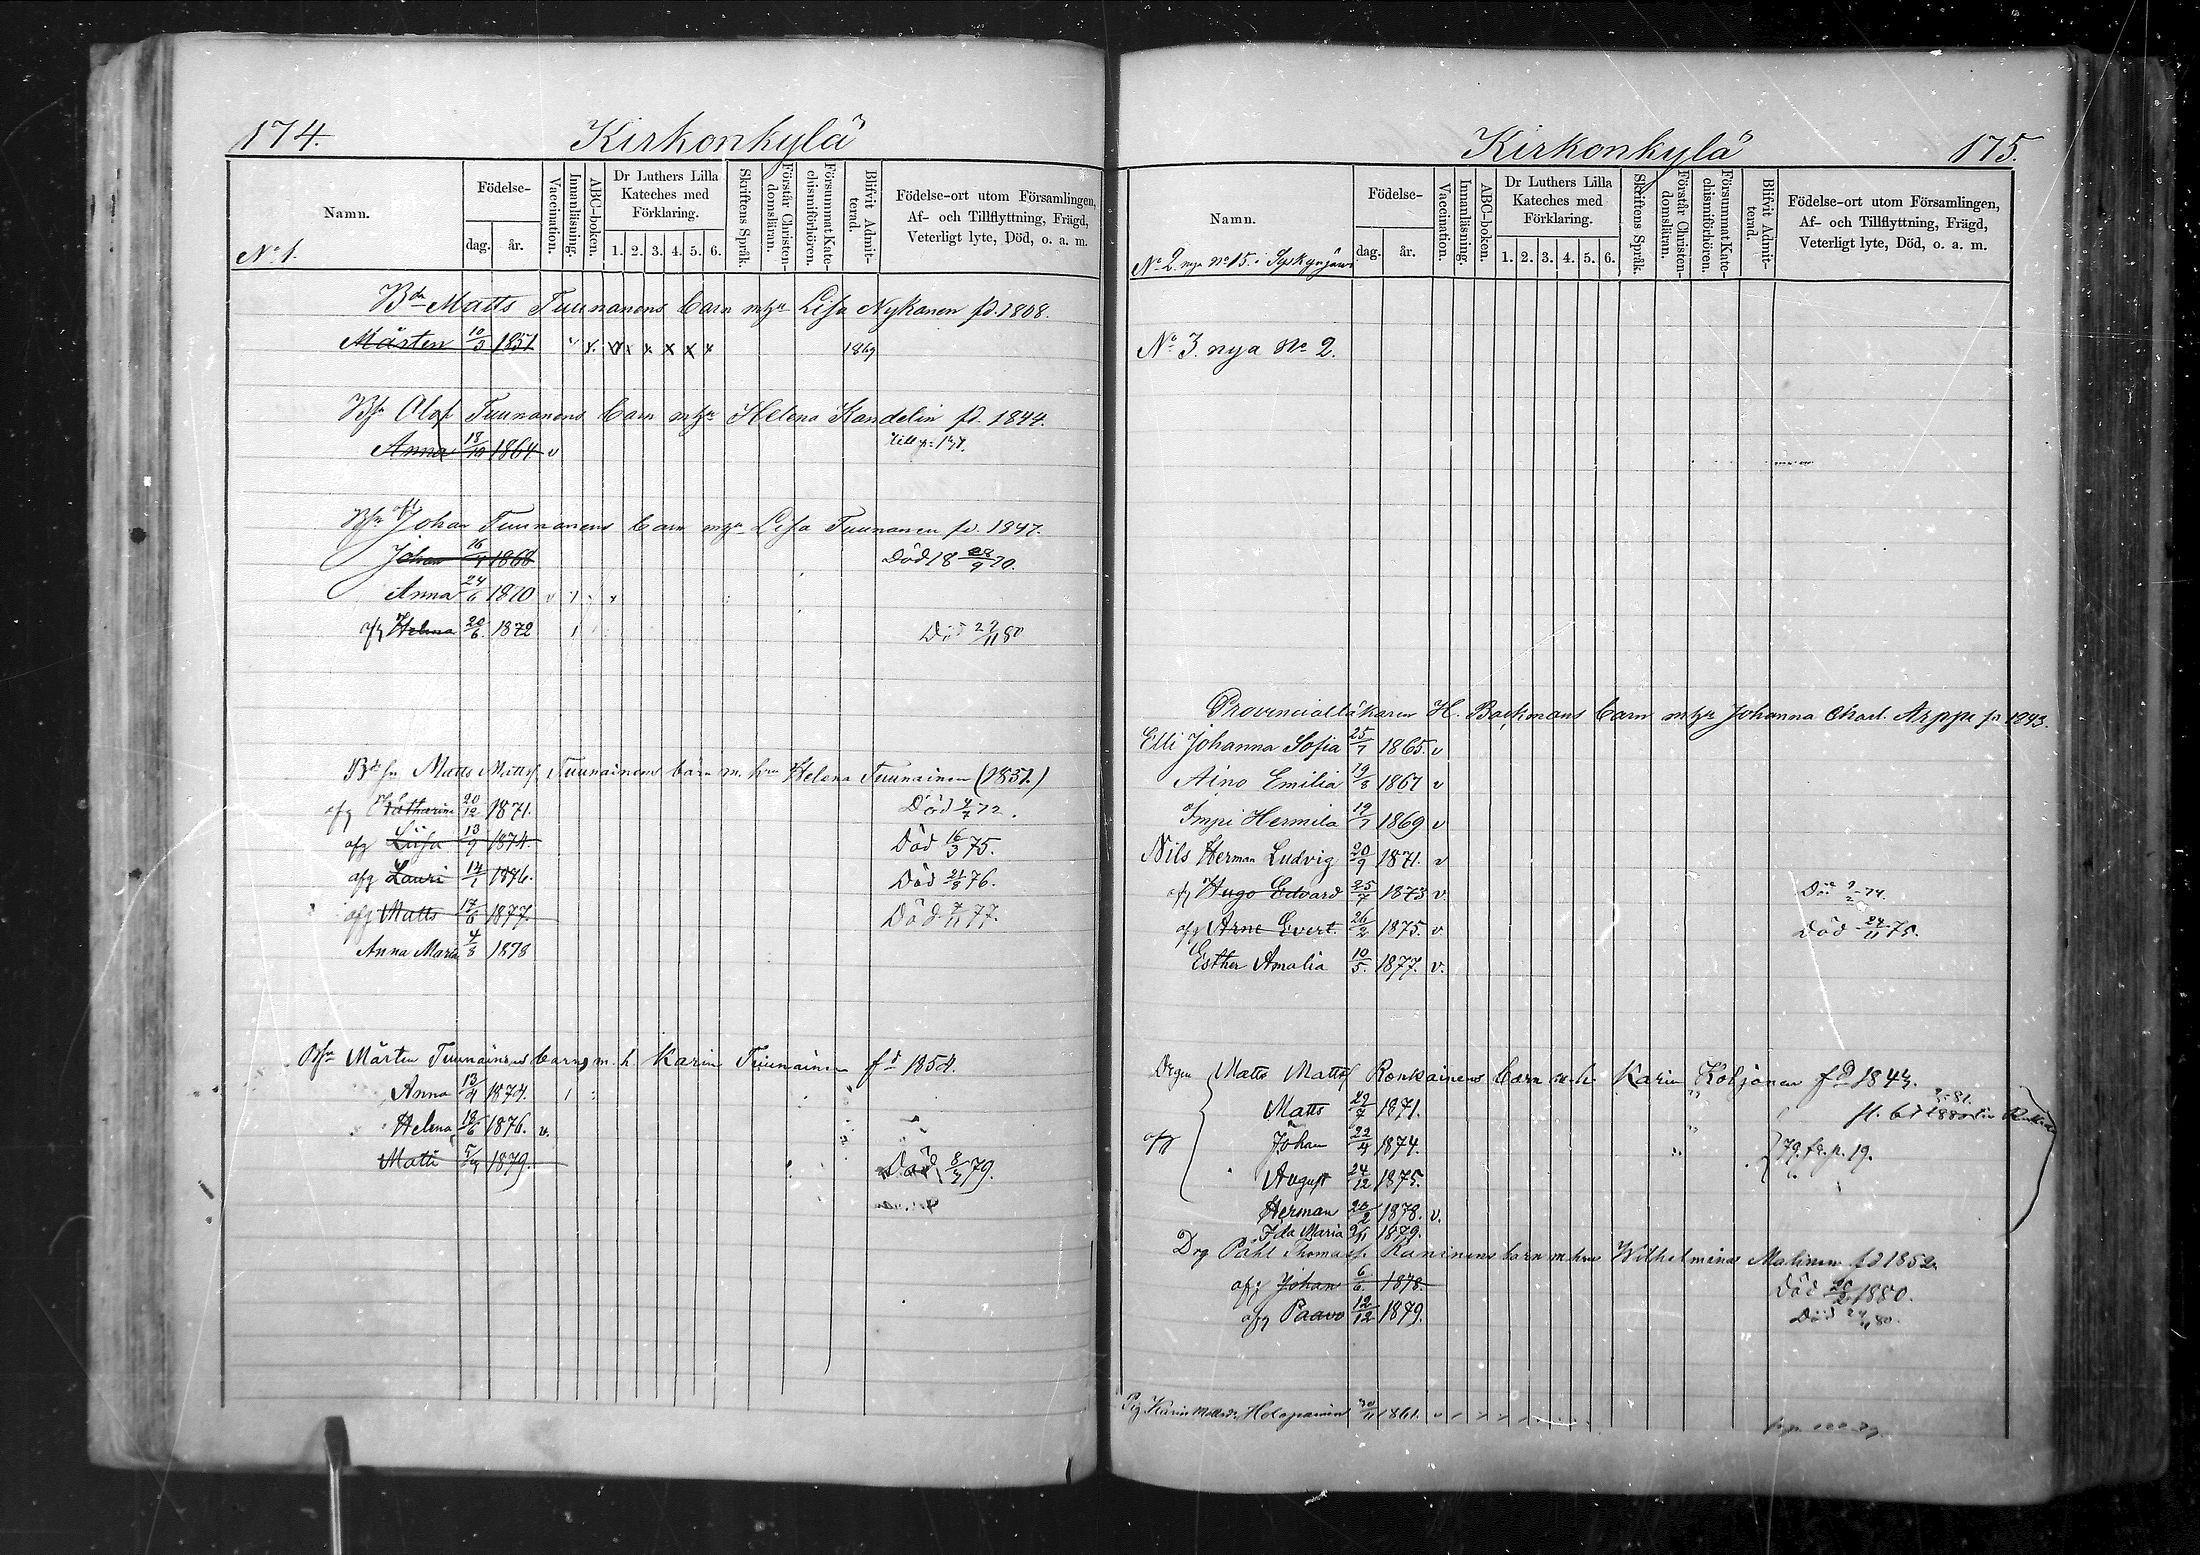 174.
Kirkonkylä
Namn.
Födelse-
dag.
år.
Vaccination.
Innanläsning.
ABC-boken.
Dr Luthers Lilla Kateches med Förklaring.
1. 2. 3. 4. 5. 6.
Skriftens Språk.
Förstår Christendomsläran.
Försummat Katechismiförhören.
Blifvit Admitterad.
Födelse-ort utom Församlingen, Af- och Tillflyttning, Frägd, Veterligt lyte, Död, o. a. m.
No 1.
Bdn Matts Tuunanens barn m hu Lisa Nykänen fd. 1808.
Mårten 10/3 1851 1869
Bfn Olof Tuunanens barn m hu Helena Kandelin fd. 1844.
Anna 18/10 1864 v
Bfn Johan Tuunanens barn m hu Lisa Tuunanen fd. 1847.
Johan 1868 Död 18 28/9 70.
Anna 24/6 1870 v
afg Helena 20/6 1872 Död 29/11 80
Bd fn Matts Mattsf Tuunainens barn m. hru Helena Tuunainen (1851.)
afg Katharina 20/12 1871. Död 72.
afg Liisa 13/9 1874. Död 16/3 75.
afg Lauri 14/1 1876. Död 21/3 76.
afg Matts 17/6 1877. Död 7/11 77.
Anna Maria 4/3 1878
Bfn Mårten Tuunainens barn m. h. Karin Tuunainen fd 1854.
Anna 13/4 1874.
Helena 18/6 1876. v.
Matti 1879. Död 8/7 79.
Kirkonkylä
175.
Namn.
Födelse-
dag.
år.
Vaccination.
Innanläsning.
ABC-boken.
Dr Luthers Lilla Kateches med Förklaring.
1. 2. 3. 4. 5. 6.
Skriftens Språk.
Förstår Christendomsläran.
Försummat Katechismiförhören.
Blifvit Admitterad.
Födelse-ort utom Församlingen, Af- och Tillflyttning, Frägd, Veterligt lyte, Död, o. a. m.
No 2. nya No 15. i Syskyjärvi
No 3. nya No 2.
Provincialläkaren H. Backmans barn m hu Johanna Charl. Arppe fd 1843.
Elli Johanna Sofia 25/1 1865. v
Aino Emilia 19/8 1867 v
Impi Hermila 19/7 1869 v
Nils Herman Ludvig 20/9 1871. v
afg Hugo Edvard 25/7 1873 v. Död 74.
afg Arne Evert. 26/2 1875. v Död 24/11 75.
Esther Amalia 10/5. 1877. v.
Matts Mattsf Ronkainens barn m. h. Karin Koljonen fd 1843.
Matts 29/7 1871.
afg Johan 22/4 1874. 79. fr. p. 19.
August 24/12 1875.
Herman 20/2 1878. v.
Ida Maria 1879.
Drg Påhl Thomasf. Kaninens barn m hru Wilhelmina Malinen fd 1852.
afg Johan 6/6. 1878. Död 1880.
afg Paavo 12/12 1879. Död 80.
Pig. Karin Holopainen 1861.